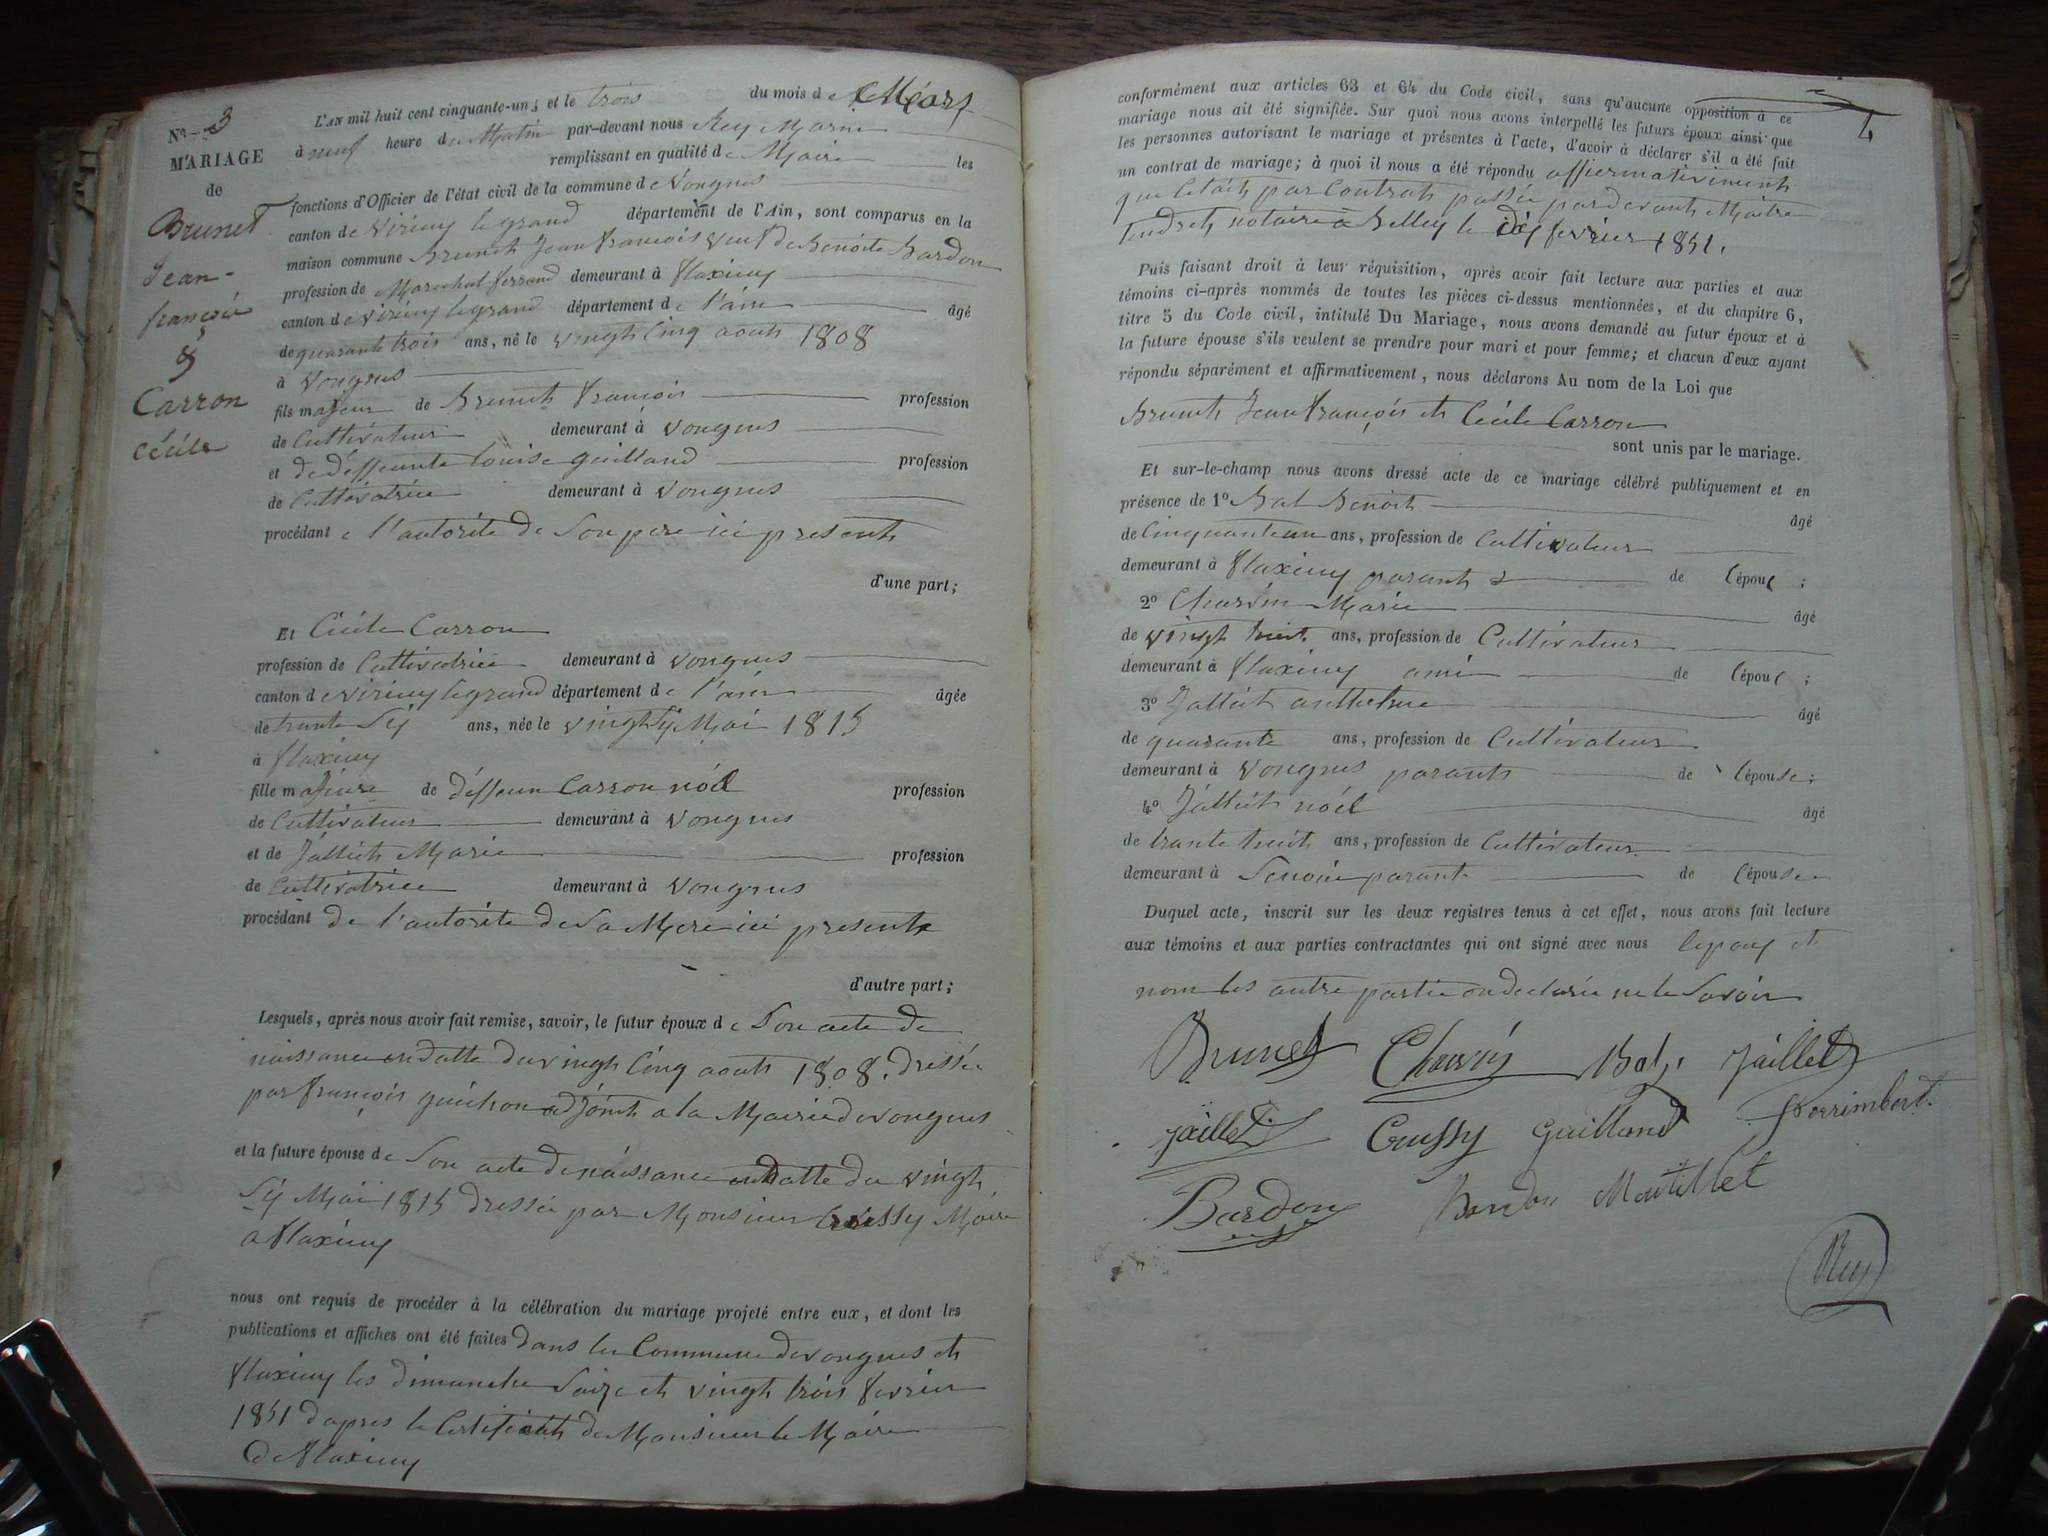 No 3
MARIAGE
de
Brunet
Jean-
françois
&
Carron
Cécile
L'AN mil huit cent cinquante-un, et le trois du mois de Mars
à neuf heure du Matin par-devant nous Rey Marin
remplissant en qualité de Maire les
fonctions d'Officier de l'état civil de la commune de Vongnes
canton de Virieu le grand département de l'Ain, sont comparus en la
maison commune Brunet Jean françois veuf de Benoite Bardon
profession de Marechal ferrand demeurant à flaxieu
canton de Virieu le grand département de l'ain âgé
de quarante trois ans, né le vingt cinq aout 1808
à Vongnes
fils majeur de Brunet françois profession
de Cultivateur demeurant à Vongnes
et de déffeunte Louise guilland profession
de Cultivatrice demeurant à Vongnes
procédant e l'autorité de Son pere ici present
d'une part;
Et Cécile Carron
profession de Cultivatrice demeurant à Vongnes
canton de Virieu le grand département de l'ain âgée
de trente Sij ans, née le vingt Sij Mai 1815
à flaxieu
fille majeure de déffeun Carron nöel profession
de Cultivateur demeurant à Vongnes
et de Jalliet Marie profession
de Cultivatrice demeurant à Vongnes
procédant de l'autorité de Sa Mere ici presente
d'autre part;
Lesquels, après nous avoir fait remise, savoir, le futur époux de Son acte de
naissance en datte du vingt cinq aout 1808. dressée
par françois adjoint a la Mairie de vongnes
et la future épouse de Son acte de naissance en datte du vingt
Sij Mai 1815 dressée par Monsieur Crussy Maire
a flaxieu
nous ont requis de procéder à la célébration du mariage projeté entre eux, et dont les
publications et affiches ont été faites dans les Commune de vongnes et
flaxieu les dimanche Saize et vingt trois fevrier
1851 dapres le Certificat de Monsieur le Maire
de flaxieu
4
conformément aux articles 63 et 64 du Code civil, sans qu'aucune opposition à ce
mariage nous ait été signifiée. Sur quoi nous avons interpellé les futurs époux ainsi que
les personnes autorisant le mariage et présentes à l'acte, d'avoir à déclarer s'il a été fait
un contrat de mariage; à quoi il nous a été répondu affiermativement
que letait par Contrat passée pardevant Maitre
Tendret notaire a Belley le dij fevrier 1851.
Puis faisant droit à leur réquisition, après avoir fait lecture aux parties et aux
témoins ci-après nommés de toutes les pièces ci-dessus mentionnées, et du chapitre 6,
titre 5 du Code civil, intitulé Du Mariage, nous avons demandé au futur époux et à
la future épouse s'ils veulent se prendre pour mari et pour femme; et chacun d'eux ayant
répondu séparément et affirmativement, nous déclarons Au nom de la Loi que
Brunet Jean françois et Cécile Carron
sont unis par le mariage.
Et sur-le-champ nous avons dressé acte de ce mariage célébré publiquement et en
présence de 1o Bal Benoit âgé
de Cinquante un ans, profession de Cultivateur
demeurant à flaxieu parent de lépou ;
2o Charvin Marie âgé
de vingt huit ans, profession de Cultivateur
demeurant à flaxieu ami de lépou ;
3o Jalliet anthelme âgé
de quarante ans, profession de Cultivateur
demeurant à Vongnes parant de lépouse;
4o Jalliet nöel âgé
de trante huit ans, profession de Cultivateur
demeurant à parant de lépouse
Duquel acte, inscrit sur les deux registres tenus à cet effet, nous avons fait lecture
aux témoins et aux parties contractantes qui ont signé avec nous lepouj et
nom les autre partie on declarée ne le Savoir
Brunet Charvin Bal Jaillet
Jaillet Crussy Guilland Perrimbert
Bardon Bardon Montillet
Rey